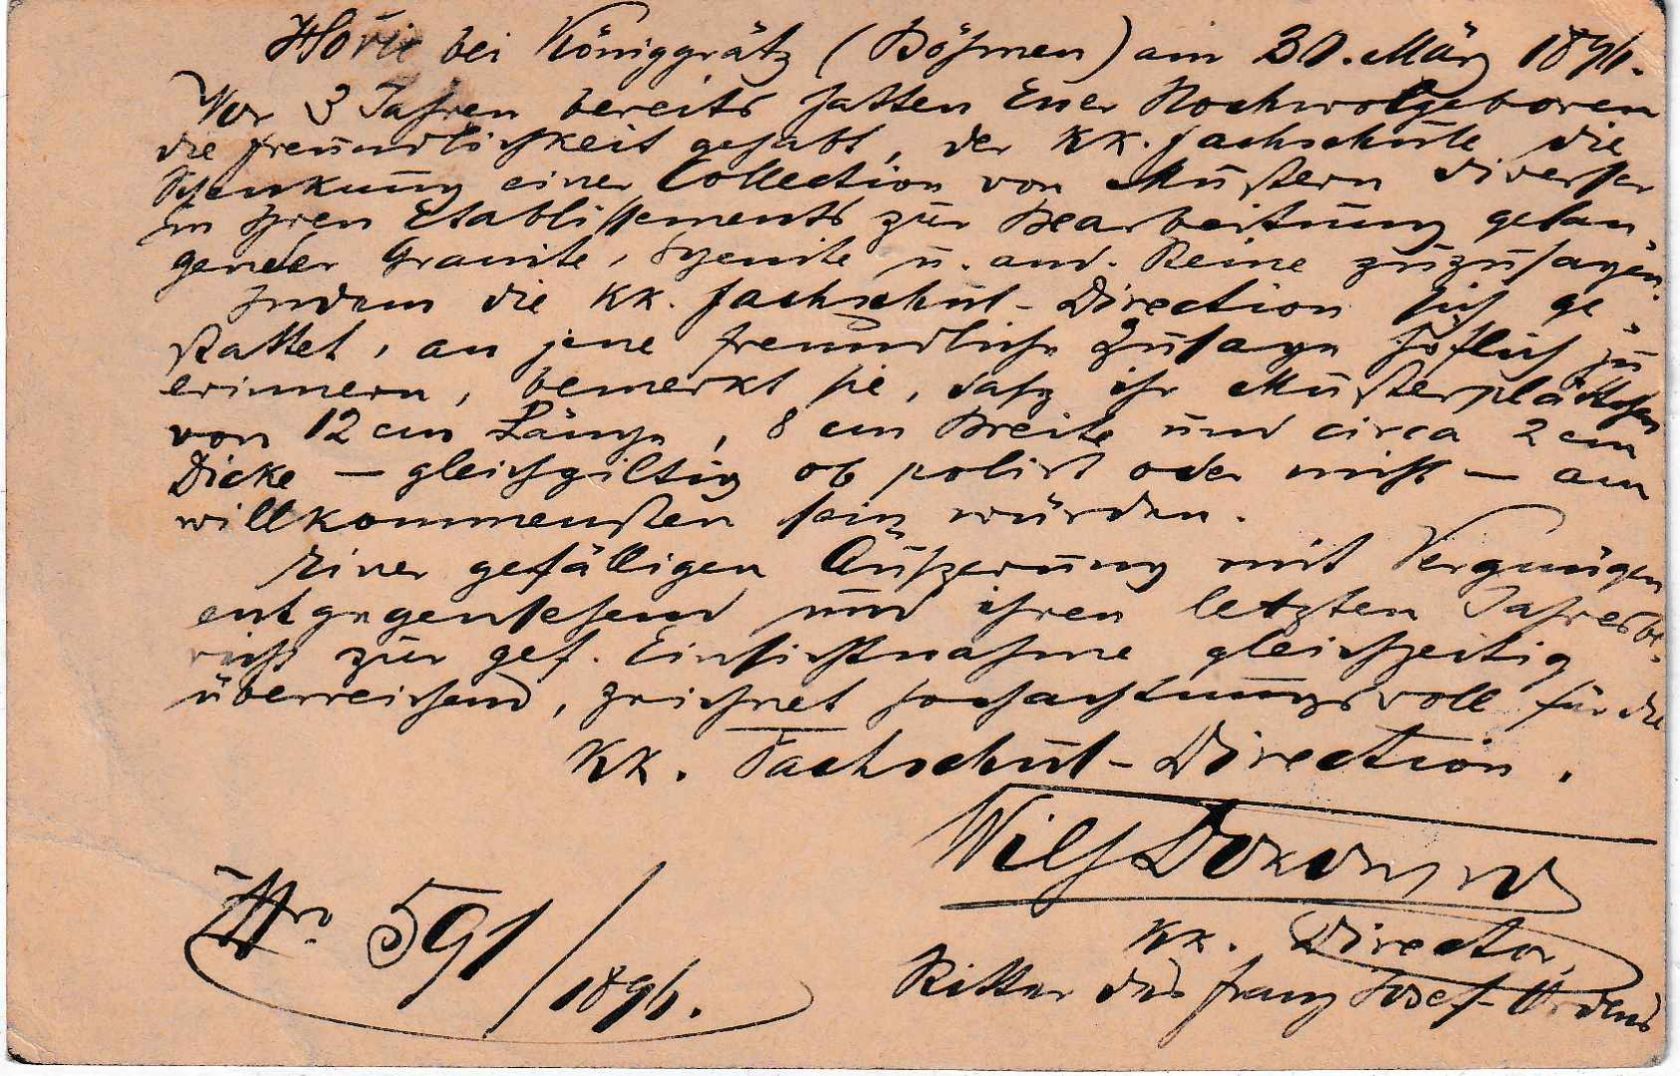 Hořic bei Königgrätz (Böhmen) am 30. März 1896.
Vor 3 Jahren bereits hatten Euer Hochwolgeboren
die Freundlichkeit gehabt, der KK. Fachschule die
Schenkung einer Collection von Mustern diverser
in Ihren Etablissements zur Bearbeitung gelan-
gender Granite, Syenite u. and. Steine zuzusagen.
Indem die KK. Fachschul-Direction sich ge-
stattet, an jene freundliche Zusage höflich zu
erinnern, bemerkt sie, dasz ihr Musterplättchen
von 12 cm Länge, 8 cm Breite und circa 2 cm
Dicke — gleichgiltig ob polirt oder nicht — am
willkommensten sein würden.
Einer gefälligen Äuszerung mit Vergnügen
entgegensehend und ihren letzten Jahresbe-
richt zur gef. Einsichtnahme gleichzeitig
überreichend, zeichnet hochachtungsvoll für die
KK. Fachschul-Direction.
Wilh
KK. Director,
Ritter des Franz Josef-Ordens
Nro. 591/1896.